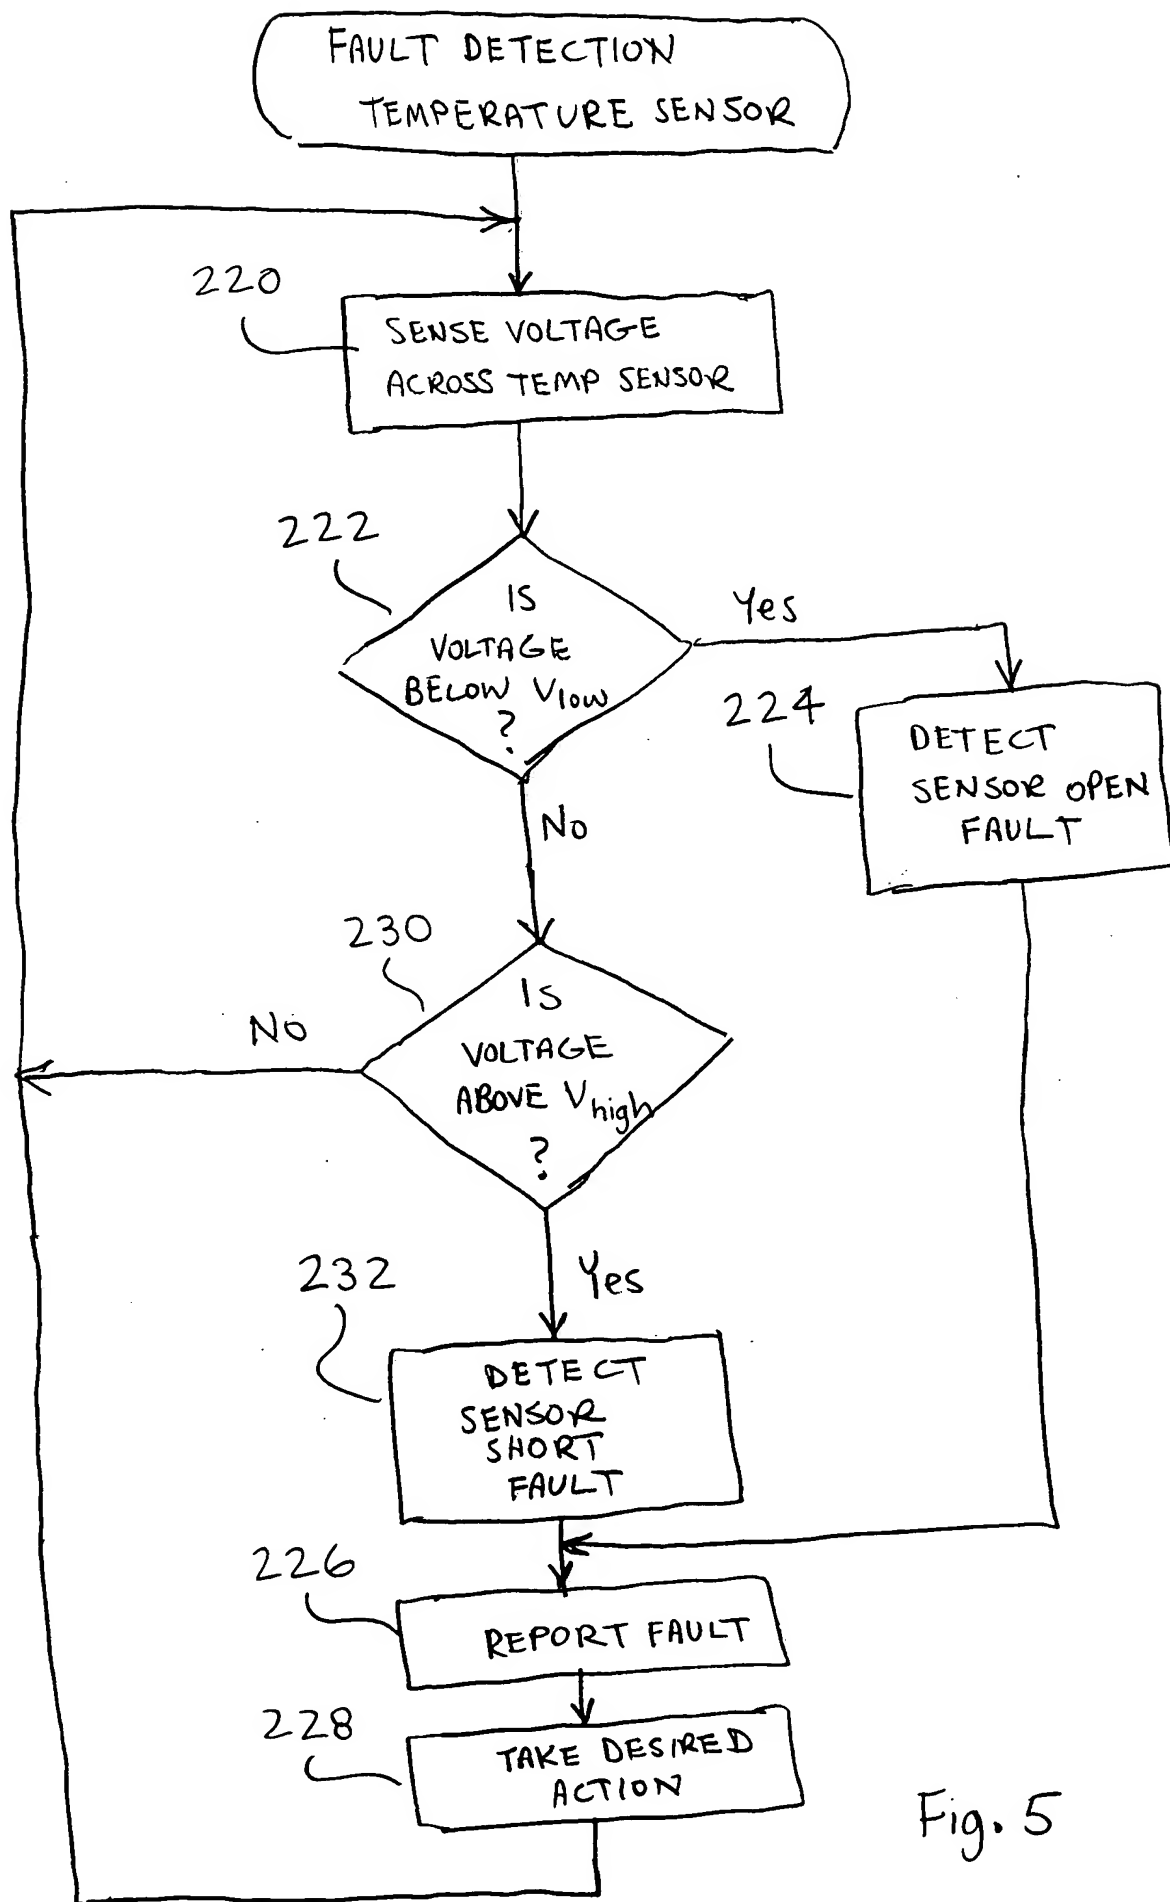 FAULT DETECTION
TEMPERATURE SENSOR
220
SENSE VOLTAGE
ACROSS TEMP SENSOR
222
IS
VOLTAGE
BELOW Vlow
?
Yes
224
DETECT
SENSOR OPEN
FAULT
No
230
IS
VOLTAGE
ABOVE Vhigh
?
No
Yes
232
DETECT
SENSOR
SHORT
FAULT
226
REPORT FAULT
228
TAKE DESIRED
ACTION
Fig. 5